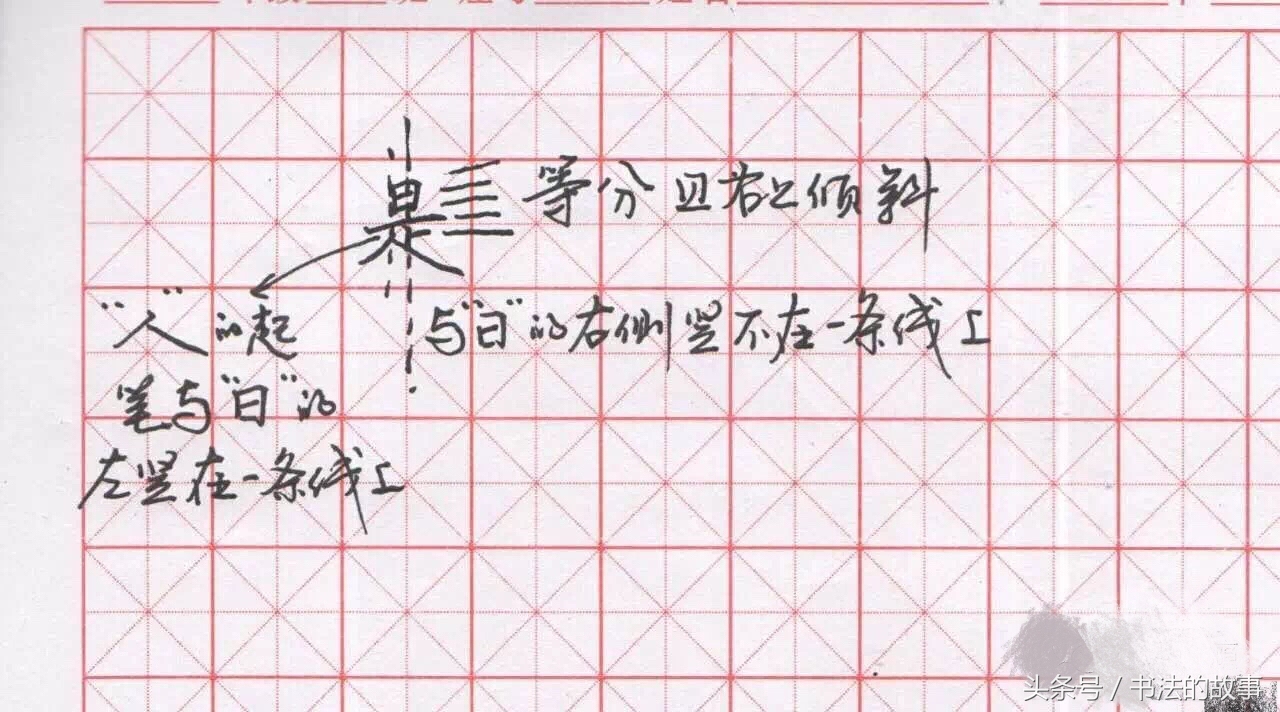 等分且右上倾斜
"人"的起
笔与"日"的
左竖在一条线上
与"日"的右侧竖不在一条线上
头条号 / 书法的故事